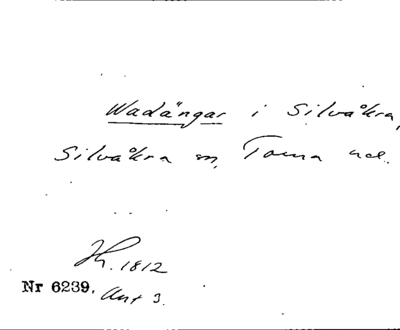 Wadängar i Silvåkra,
Silvåkra sn, Torna hd.
Lh. 1812
Nr 6239. Akt 3.